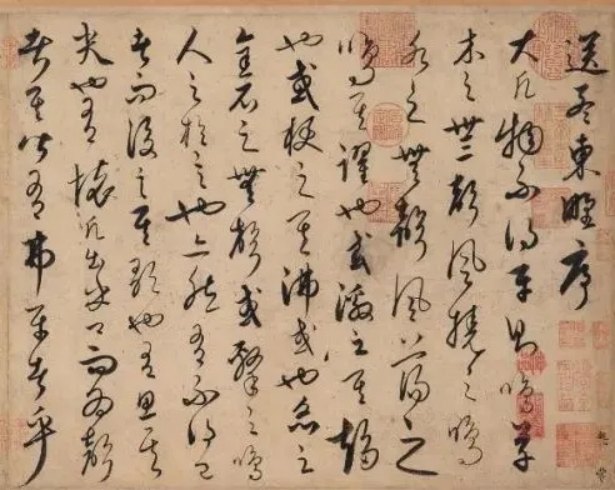 送孟東野序
大凡物不得平則鳴草
木之無聲風撓之鳴
水之無聲風蕩之
鳴其躍也或激之其趨
也或梗之其沸或也炙之
金石之無聲或擊之鳴
人之於言也亦然有不得已
者而後言其歌也有思其
哭也有懷凡出乎口而為聲
者其皆有弗平者乎